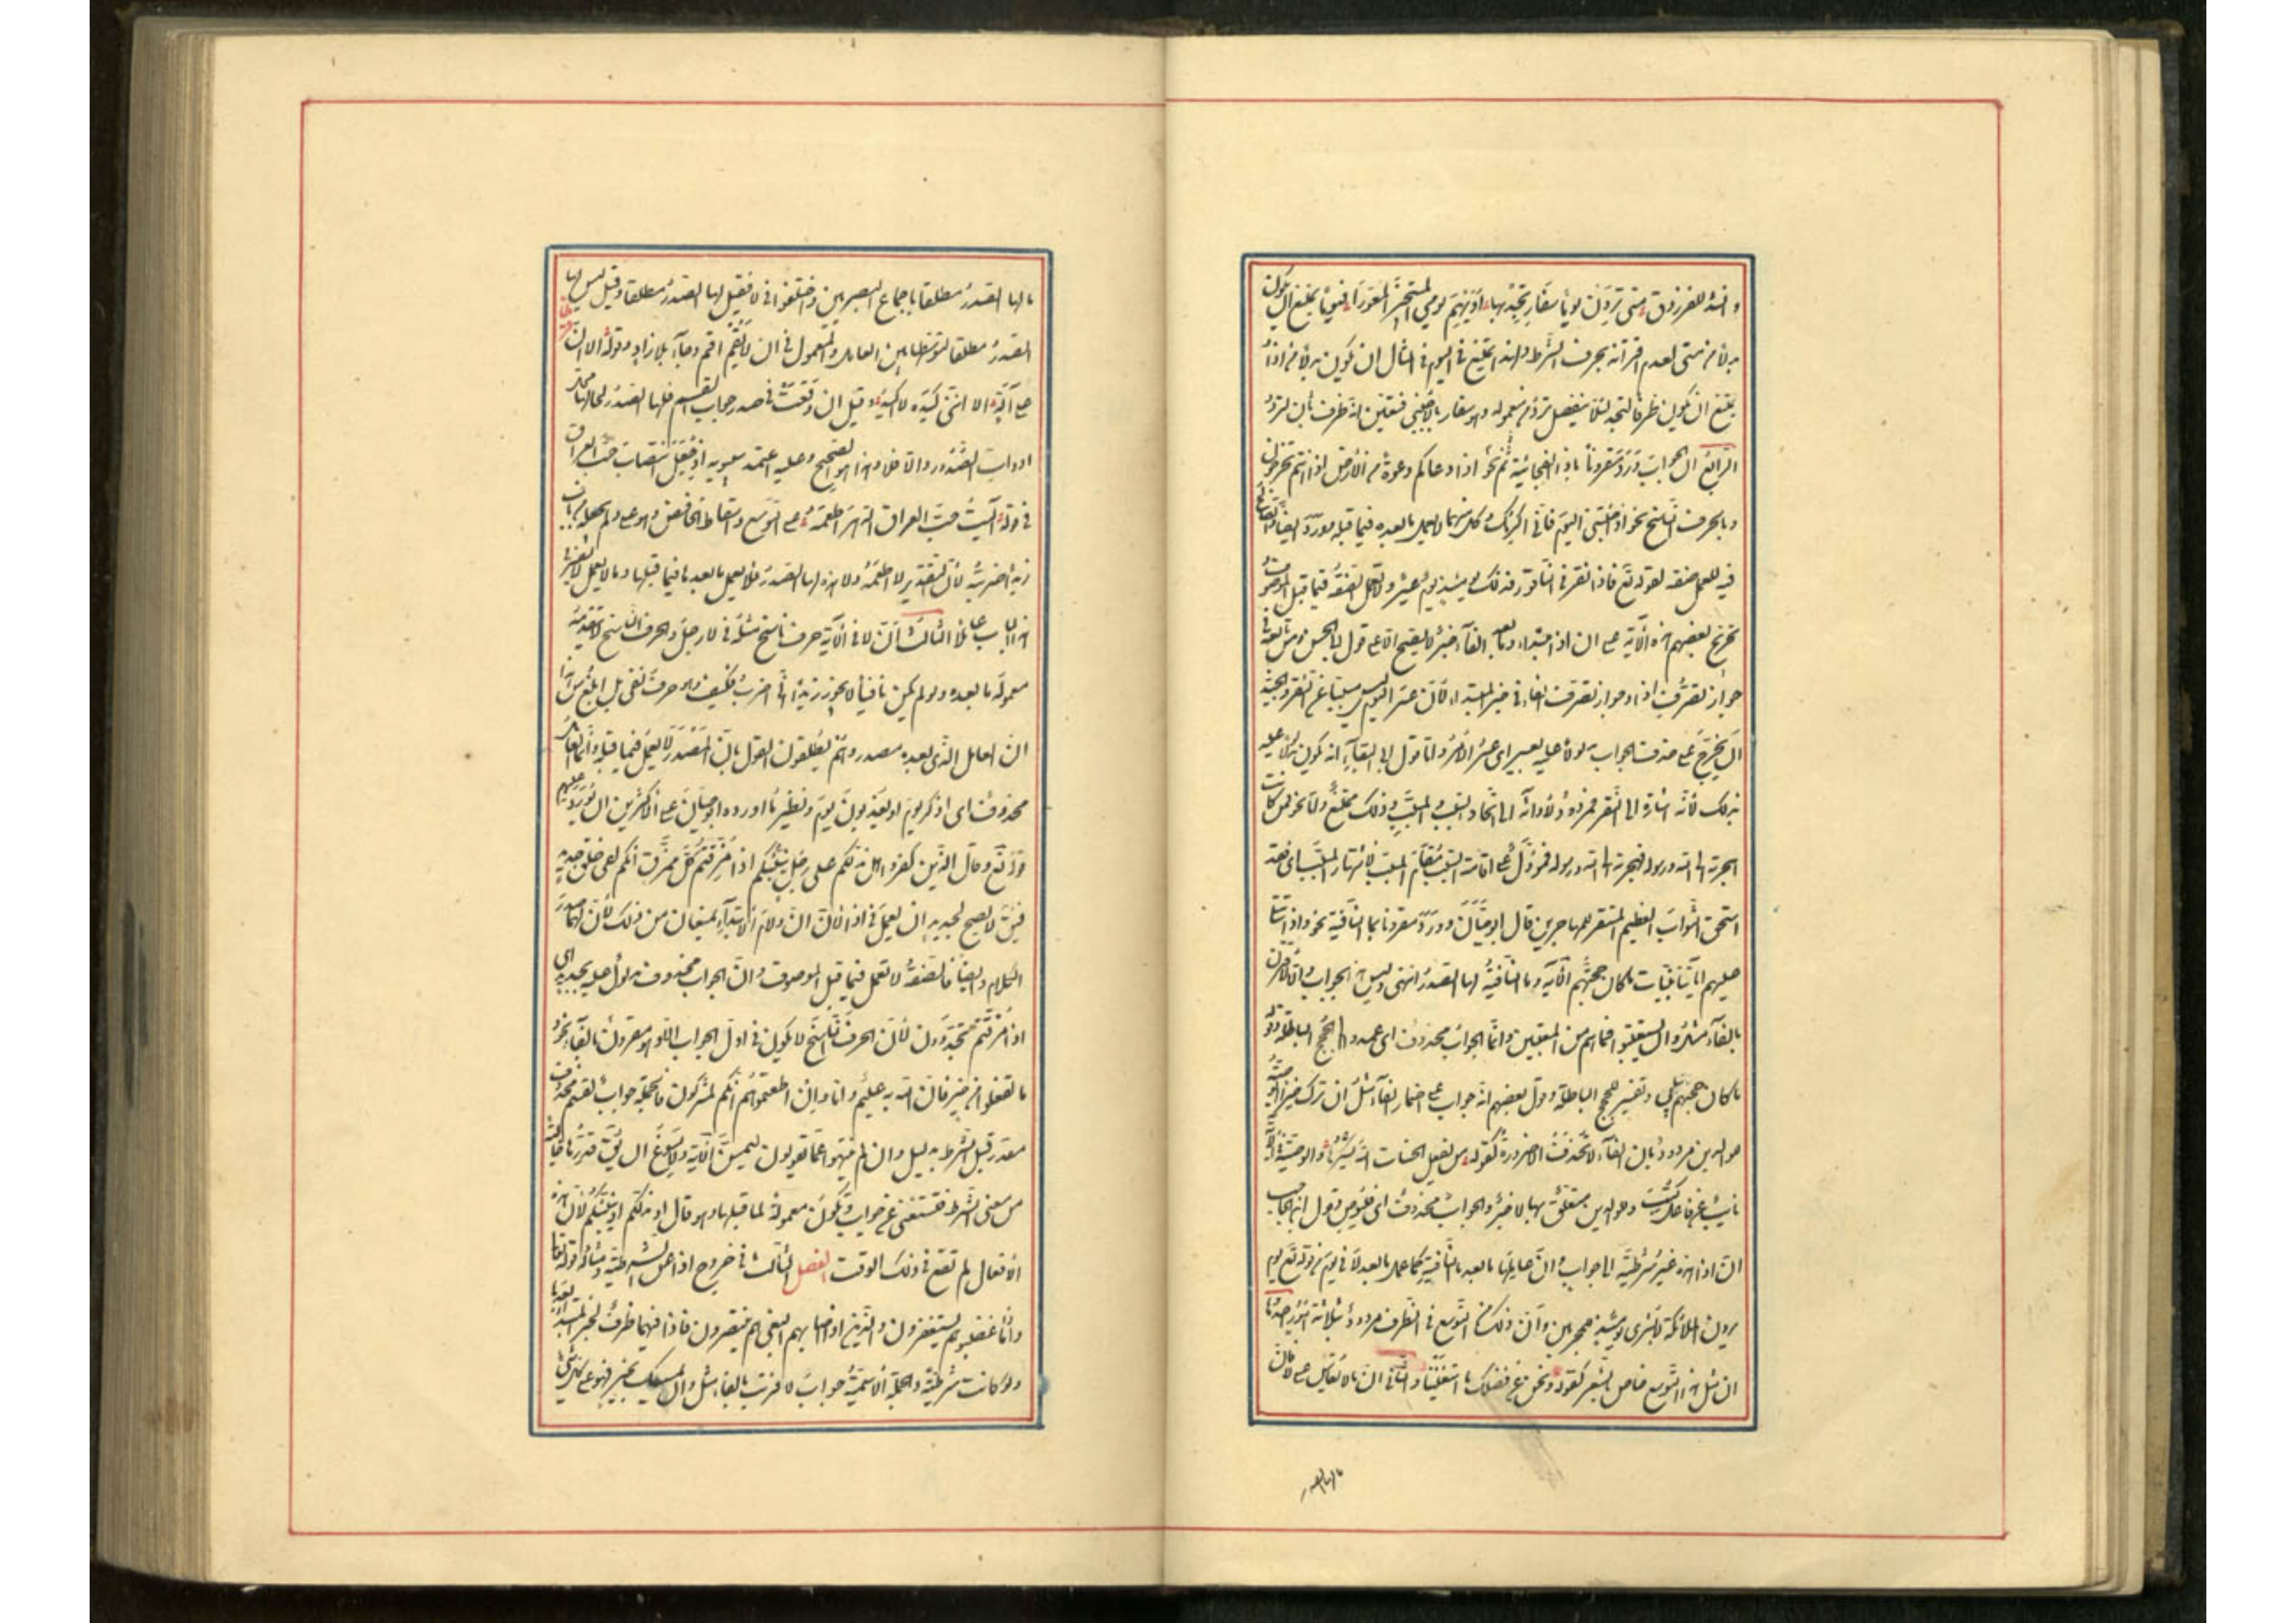 وانشد للفرزدق متى تردن يوما سفار تجد بها اديهم يرمى المستجيز المعورا فيوما يمتنع ان يكون
بدلا من متى لعدم اقترانه بحرف الشرط ولهذا يمتنع فى اليوم فى المثال ان يكون بدلا من اذا
يمتنع ان يكون ظرفا لتجد لئلا ينفصل ترد من معموله وهو سفار بالاجنبى فتعين انه ظرف ثان لترد
الرابع ان الجواب ورد مقرونا باذا الفجائية نحو ثم اذا دعاكم دعوة من الارض اذا انتم تخرجون
وبالحرف الناسخ نحو اذا جئتنى اليوم فانى اكرمك وكل منهما لا يعمل ما بعده فيما قبله وورد ايضا والصالح
فيه للعمل صفة كقوله تع فاذا نقر فى الناقور فذلك يومئذ يوم عسير ولا تعمل الصفة فيما قبل الموصوف
تخريج بعضهم هذه الآية على ان اذا مبتداء وما بعد الفاء خبر لا يصح الا على قول ابى الحسن ومن تابعه فى
جواز تصرف اذا وجواز تصرف الفاء فى خبر المبتداء لان عسر اليوم ليس مسببا عن النقر والجيد
ان يخرج على حذف الجواب مدلولا عليه بعسير اى عسر الامر واما قول ابى البقاء انه يكون مدلولا عليه
بذلك لانه اشارة الى النقر فمردود لادائه الى اتحاد السبب والمسبب وذلك ممتنع واما نحو فمن كانت
هجرته الى الله ورسوله فهجرته الى الله ورسوله فمؤول على اقامة السبب مقام المسبب لاشتهار المسبب اى فقد
استحق الثواب العظيم المستقر للمهاجرين قال ابو حيان وورد مقرونا بما النافية نحو واذا تتلى
عليهم آياتنا بينات ما كان حجتهم الآية وما النافية لها الصدر انتهى وليس هذا بجواب والا لاقترن
بالفاء مثل وان يستعتبوا فما هم من المعتبين وانما الجواب محذوف اى عمدوا الى الحجج الباطلة وقوله
ما كان حجتهم وتفسير للحجج الباطلة وقول بعضهم انه جواب على اضمار الفاء مثل ان ترك خيرا الوصية
للوالدين مردود بان الفاء لا تحذف الا ضرورة كقوله من يفعل الحسنات الله يشكرها والوصية فى الآية
نائب عن فاعل كتب وللوالدين متعلق بها لا خبر والجواب محذوف اى فليوص وقول ابن الحاجب
ان اذا هذه غير شرطية الى جواب وان عاملها ما بعد ما النافية كما عمل ما بعد لا فى يوم من قوله تع يوم
يرون الملائكة لا بشرى يومئذ للمجرمين وان ذلك من التوسع فى الظرف مردود بثلاثة امور احدها
ان مثل هذا التوسع خاص بالشعر كقوله ونحن عن فضلك ما استغنينا والثانى ان ما لا تقاس على لا فان
ما لها الصدر
ما لها الصدر مطلقا باجماع البصريين واختلفوا فى لا فقيل لها الصدر مطلقا وقيل ليس لها
الصدر مطلقا لتوسطها بين العامل والمعمول فى ان لا تقم اقم وجاء بلا زاد وقوله الا ان
قرطا على آلة الا اننى كيده لا اكيد وقيل ان وقعت فى صدر جواب القسم فلها الصدر لحلولها محل
ادوات الصدر والا فلا وهذا هو الصحيح وعليه اعتمد سيبويه اذ جعل انتصاب حب العراق
فى قوله آليت حب العراق الدهر اطعمه على التوسع واسقاط الخافض وهو على ولم يجعله من باب
زيدا ضربته لان التقدير لا اطعمه ولا هذه لها الصدر فلا يعمل ما بعدها فيما قبلها وما لا يعمل لا يفسر فى
هذا الباب عاملا الثالث ان لا فى الآية حرف ناسخ مثله فى لا رجل والحرف الناسخ لا يتقدمه
معمول ما بعده ولو لم يكن نافيا لا يجوز زيدا انى اضرب فكيف وهو حرف نفى بل ابلغ من هذا
ان العامل الذى بعده مصدر وهم يطلقون القول بان المصدر لا يعمل فيما قبله وانما العامل
محذوف اى اذكر يوم او يعذبون يوم ونظير ما اورده ابو حيان على الاكثرين ان يورد عليهم
قوله تع وقال الذين كفروا هل ندلكم على رجل ينبئكم اذا مزقتم كل ممزق انكم لفى خلق جديد
فيق لا يصح لجديد ان يعمل فى اذا لان ان ولام الابتداء يمنعان من ذلك لان لهما صدر
الكلام وايضا فالصفة لا تعمل فيما قبل الموصوف وان الجواب محذوف مدلول عليه بجديد اى
اذا مزقتم تجددون لان الحرف الناسخ لا يكون فى اول الجواب الا وهو مقرون بالفاء نحو
ما تفعلوا من خير فان الله به عليم واما وان اطعتموهم انكم لمشركون فالجملة جواب لقسم محذوف
مقدر قبل الشرط بدليل وان لم ينتهوا عما يقولون ليمسن الآية ولا يسوغ ان يق قدرها خالية
من معنى الشرط فتستغنى عن جواب وتكون معمولة لما قبلها وهو قال او ندلكم او ينبئكم لان هذه
الافعال لم تقع فى ذلك الوقت الفصل الثالث فى خروج اذا عن الشرطية ومثاله قوله تعالى
واذا ما غضبوا هم يغفرون والذين اذا اصابهم البغى هم ينتصرون فاذا فيهما ظرف لخبر المبتداء بعدها
ولو كانت شرطية والجملة الاسمية جوابا لاقترنت بالفاء مثل وان يمسسك بخير فهو على كل شئ